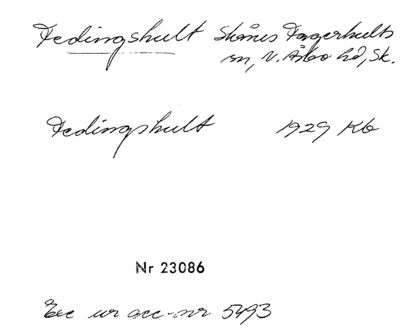 Fedingshult Skånes Fagerhults
sn, N. Åsbo hd, Sk.
Fedingshult 1929 Kb
Nr 23086
Exc ur acc-nr 5493